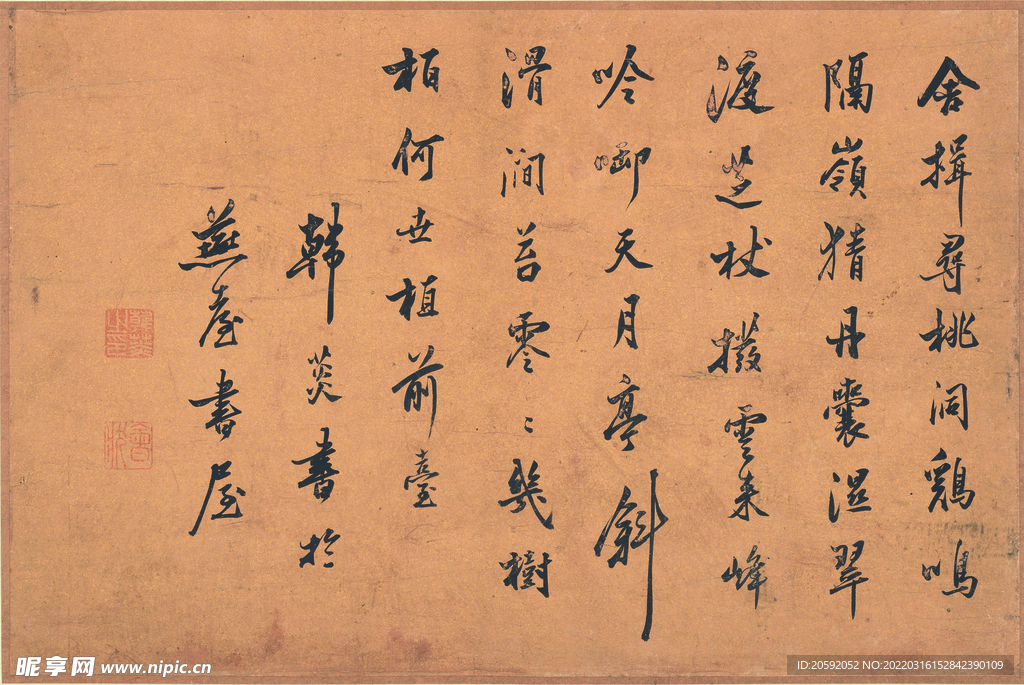 舍揖尋桃洞鷄鳴
隔嶺猜丹囊濕翠
渡芝杖撥雲来峰
吟啣天月亭斜
滑澗苔零〻幾樹
柏何世植前臺
韓菼書於
燕臺書屋
昵享网 www.nipic.cn
ID:20592052 NO:20220316152842390109